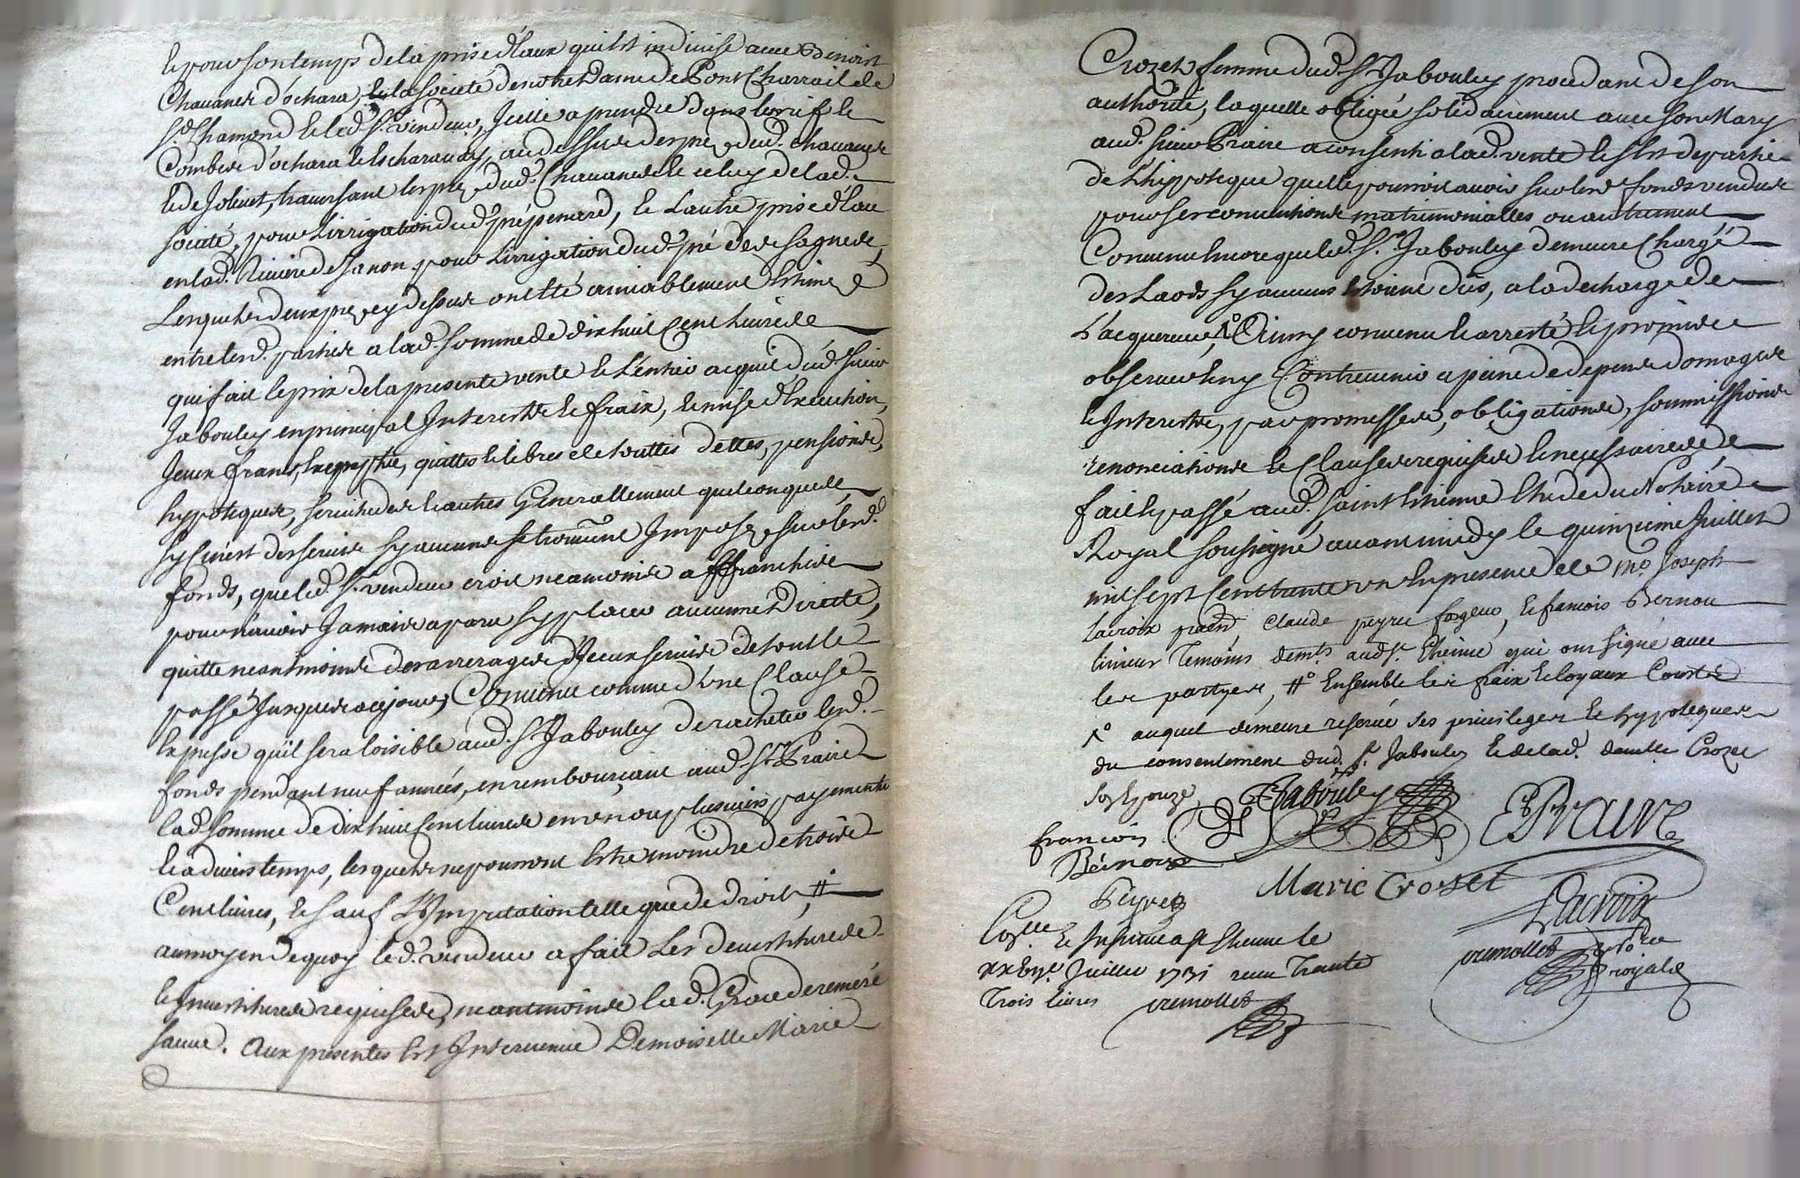 et pour son temps de la prise d'Eaux qui est indivise avec Benoist
Chavanes d'ochara, et la société de notre Dame de Pont Charrail de
St. Chamond et led. Sr. vendeur, Icelle a prendre dans le rif le
Combes d'ochara au dessus des prez dud. Chavanes
et de Jolivet, traversant les prez dud. Chavanes et celuy de lad.
société, pour l'irrigation dud. pré penard, et l'autre prise d'Eau
en lad. Riviere de Janon pour l'irrigation dud. pré des sagnes,
Lesquels deux prez cy dessus ont Eté amiablement Estimés
entre lesd. parties a lad. somme de dix huit Cent Livres
qui fait le prix de la presente vente et l'entier acquit dud. sieur
Jabouley en principal Interests et fraix, et mise d'Execution,
Iceux francs, quittes et libres de touttes dettes, pensions,
hypoteques, servitudes et autres Generallement quelconques
sy aucunes se trouvoient Imposez sur lesd.
fonds, que led. Sr. vendeur croit neamoins affranchis
pour n'avoir Jamais aparu sy placer aucunne Directe,
quitte neantmoins des arrerages d'Iceux servis de tout le
passé Jusques a ce jour, Convenu comme d'une Clause
Expresse qu'il sera loisible aud. Sr. Jabouley de racheter lesd.
fonds pendant neuf années, en rembourçant aud. Sr. Praire
lad. somme de dix huit Cent livres en un ou plusieurs payements
et a divers temps, lesquels ne pourront Estre moindre de trois
Cent livres, et sauf L'Imputation telle que de droit, #
au moyen de quoy led. vendeur a fait Les devestitures
et Investitures requises, neantmoins lad. Grace de remeré
sauve. Aux presentes Est Intervenue Demoiselle Marie
Crozet femme dud. Sr. Jabouley procedant de son
authorité, laquelle obligée solidairement avec son Mary
aud. sieur Praire a consenti a lad. vente et s'est departie
de L'hippoteque quelle pourroit avoir sur lesd. fonds vendus
pour ses conventions matrimonialles ou autrement
Convenu Encore que led. Sr. Jabouley demeure Chargé
des Laods sy aucuns Etoient dus, a la decharge de
L'acquereur, 1° Ainsy convenu et arresté et promis
observer sans Contrevenir a peine de depens domages
et Interests, par promesses, obligations, soumissions
renonciations et Clauses requises et necessaires
fait et passé aud. Saint Etienne Etude du Nottaire
Royal soussigné avant midy le quinzieme Juillet
mil sept Cent trante un En presence de Me. Joseph
Lacroix pratn. Claude peyret forgeur, et francois Bernou
limeur Temoins demts. aud. St. Etienne qui ont signé avec
les partyes, #° Ensemble les fraix et loyaux Couts
1° auquel demeure reservé ses privileges et hypoteques
du consentement dud. Sr. Jabouley et de lad. damlle. Crozet
son Epouze
Jabouley
EPraire
francois
Bernou
Marie Crozet
Peyret
Lacroix
Collé. et Insinué a St. Etienne le
Juillet 1731 receu Trante
Trois livres
vernollet
vernollet
nore
royal